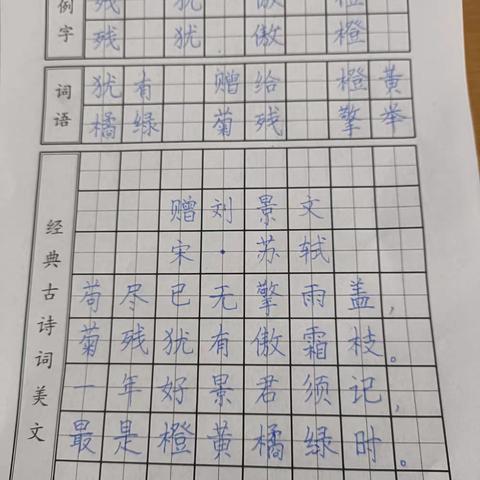 例字
残 犹 傲 橙
残 犹 傲 橙
词语
犹有 赠给 橙黄
橘绿 菊残 擎举
经典古诗词美文
赠刘景文
宋·苏轼
苟尽已无擎雨盖，
菊残犹有傲霜枝。
一年好景君须记，
最是橙黄橘绿时。